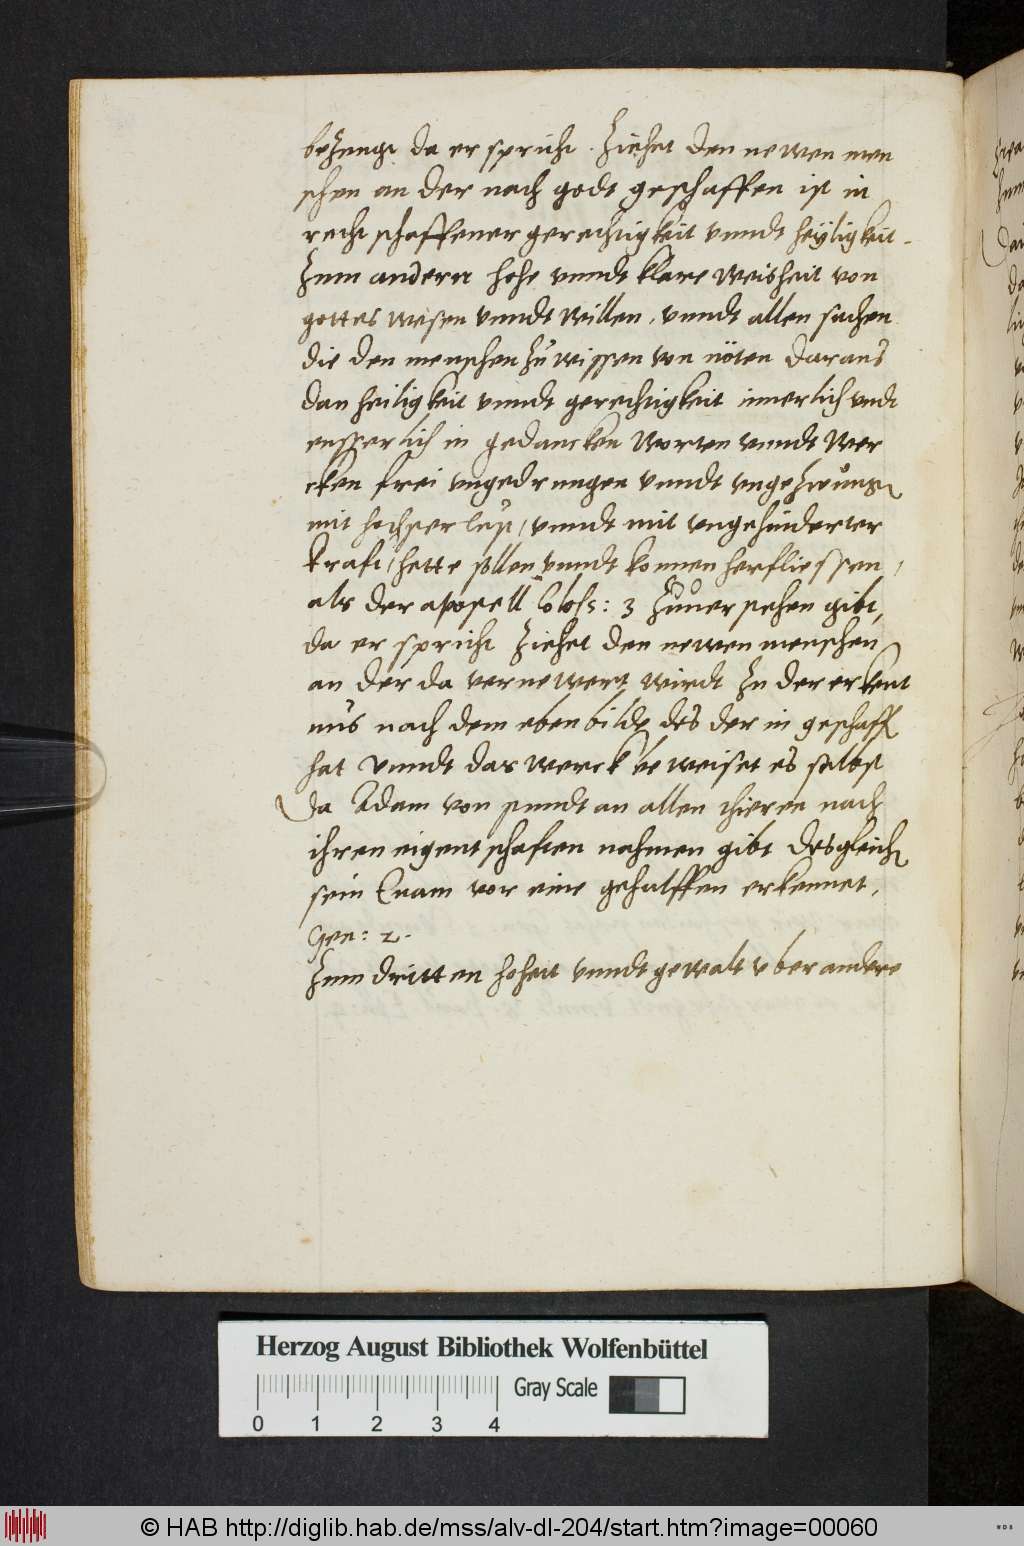 bezeugt da er spricht. Ziehet den newen men
schen an der nach godt geschaffen ist in
recht schaffener gerechtigkeit vnndt heÿligkeit.
Zum andern hohe vnndt klare weisheit von
gottes wesen vnndt willen, vnndt allen sachen
die den menschen zu wissen von nöten daraus
dan heiligkeit vnndt gerechtigkeit innerlich vndt
eusserlich in gedancken worten vnndt wer
cken frei vngedrungen vnndt vngezwung
mit hochster lust, vnndt mit vngehinderter
kraft, hette sollen vnndt konnen herfliessen,
als der apostell Coloss: 3 zuuerstehen gibt,
da er spricht Ziehet den newen menschen
an der da vernewert wirdt zu der erkent
nus nach dem ebenbilde des der in geschaff
hat vnndt das werck beweiset es selbst
Da Adam von stundt an allen thieren nach
ihren eigentschaften nahmen gibt desgleich
sein Euam vor eine gehalffen erkennet,
Gen: 2.
Zum dritten hoheit vnndt gewalt vber andere
Herzog August Bibliothek Wolfenbüttel
Gray Scale
0 1 2 3 4
© HAB http://diglib.hab.de/mss/alv-dl-204/start.htm?image=00060